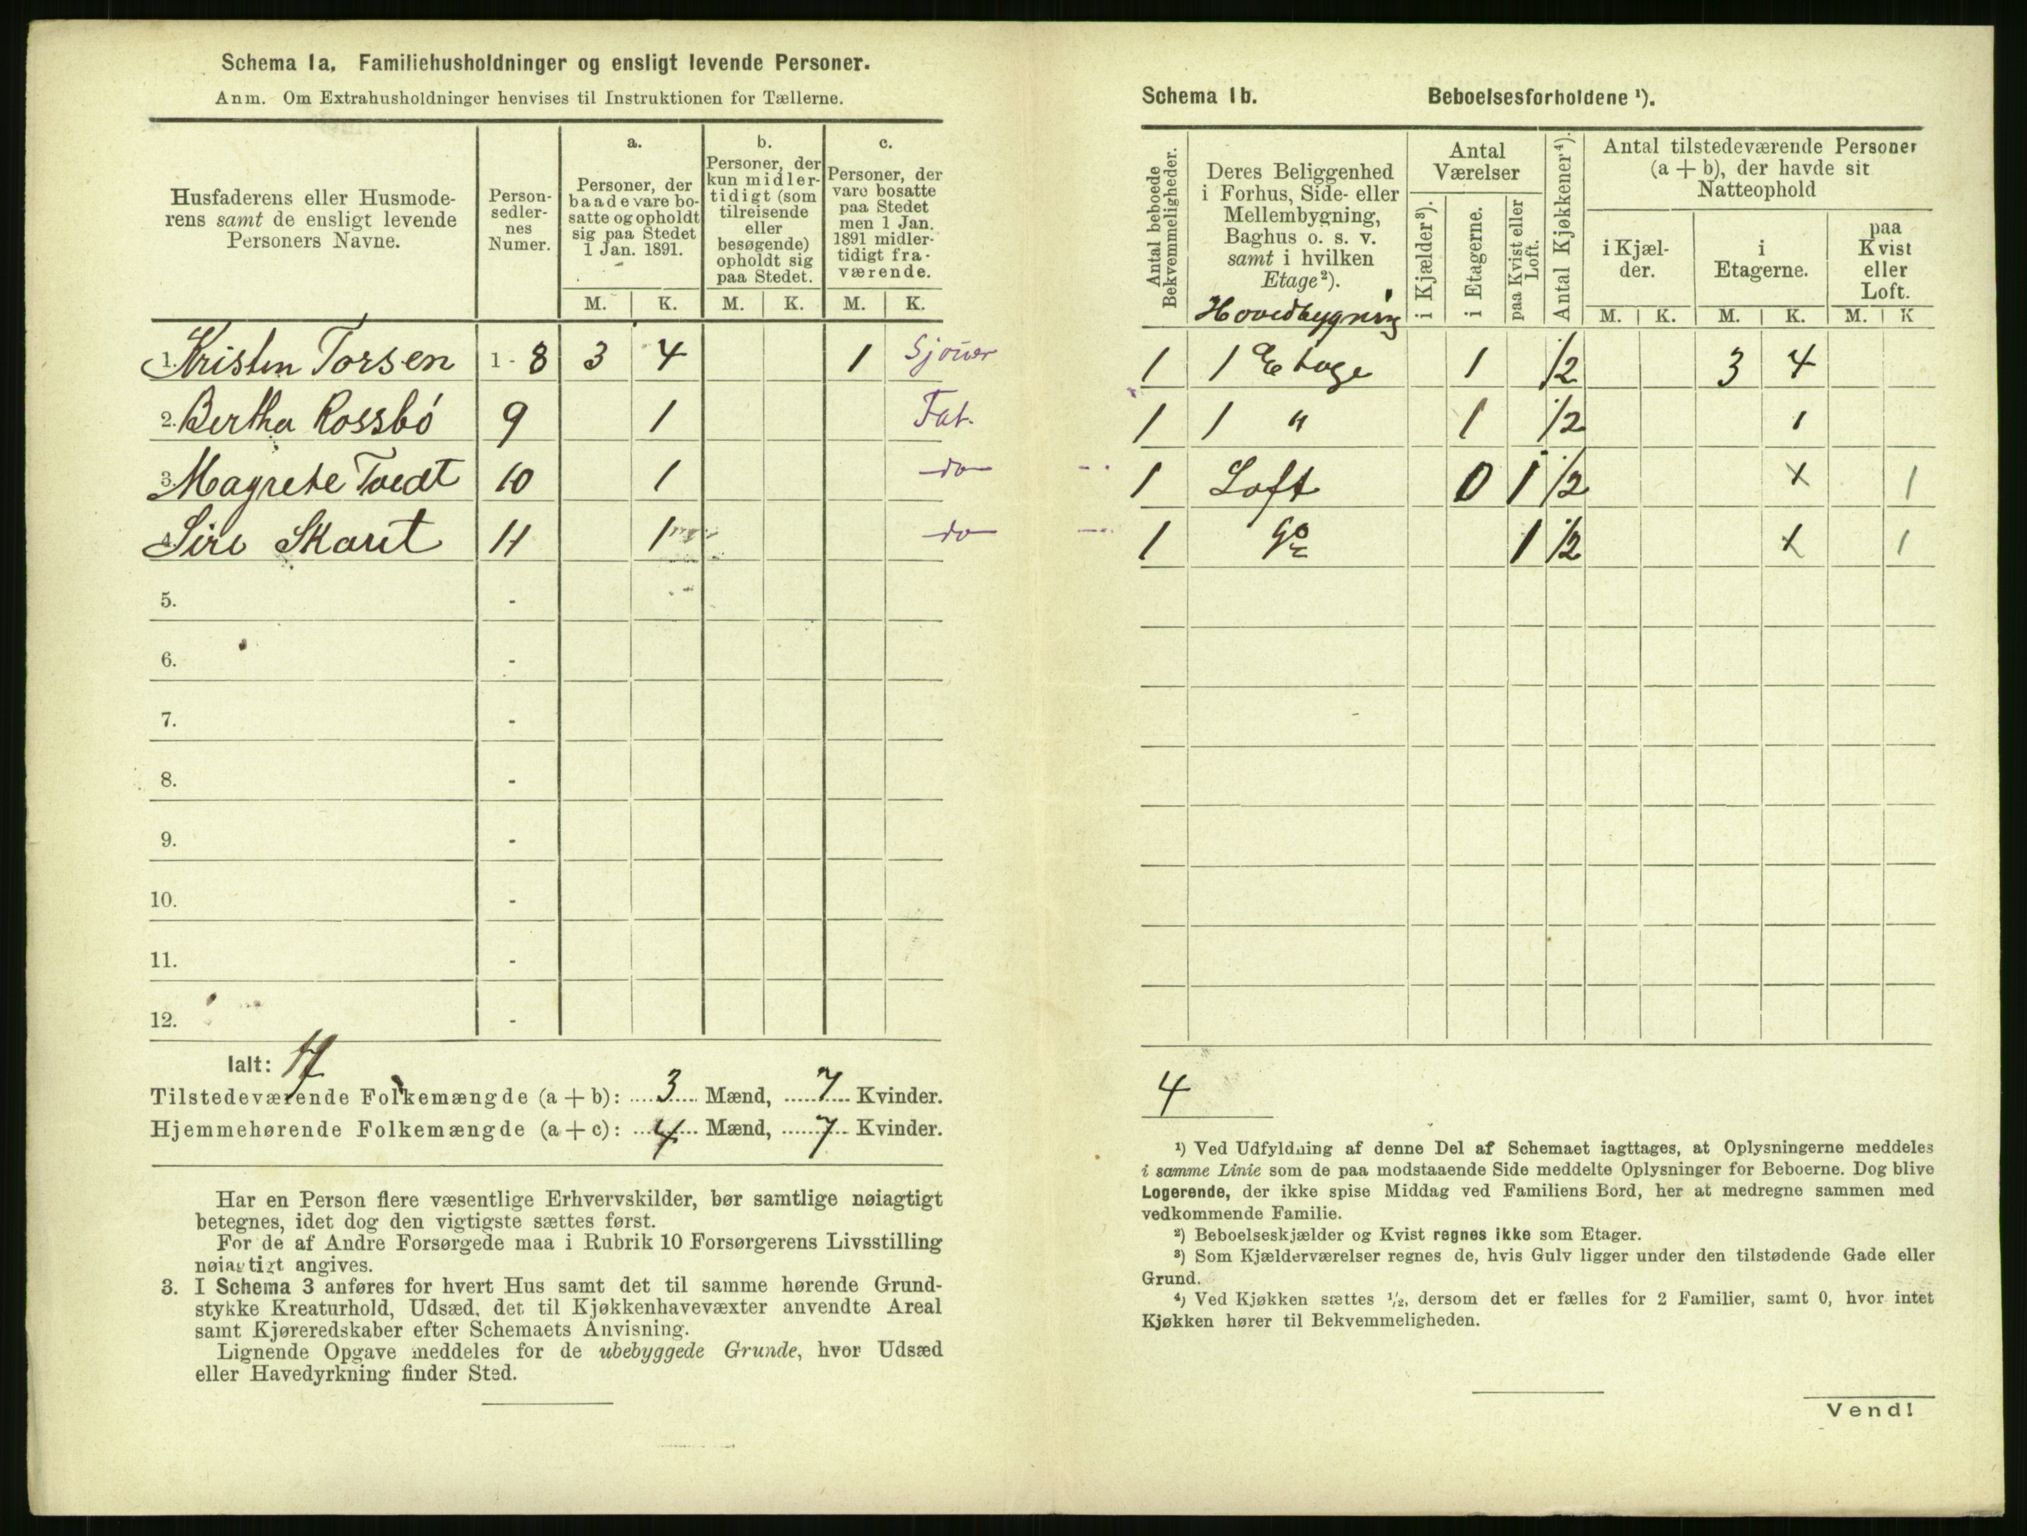 Schema 1a. Familiehusholdninger og ensligt levende Personer.
Anm. Om Extrahusholdninger henvises til Instruktionen for Tællerne.
Husfaderens eller Husmode-
rens samt de ensligt levende
Personers Navne.
Person-
sedler-
nes
Numer.
a.
Personer, der
baade vare bo-
satte og opholdt
sig paa Stedet
1 Jan. 1891.
b.
Personer, der
kun midler-
tidigt (som
tilreisende
eller
besøgende)
opholdt sig
paa Stedet.
c.
Personer, der
vare bosatte
paa Stedet
men 1 Jan.
1891 midler-
tidigt fra-
værende.
M. K. M. K. M. K.
1. Kristen Torsen 1 - 8 3 4 1 Sjouer
2. Bertha Rossbó 9 1 Fat.
3. Magrete Tvedt 10 1 do
4. Siri Skaret 11 1 do
5. -
6. -
7. -
8. -
9. -
10. -
11. -
12. -
Ialt:
Tilstedeværende Folkemængde (a + b): 3 Mænd, 7 Kvinder.
Hjemmehørende Folkemængde (a + c): 4 Mænd, 7 Kvinder.
Har en Person flere væsentlige Erhvervskilder, bør samtlige nøiagtigt
betegnes, idet dog den vigtigste sættes først.
For de af Andre Forsørgede maa i Rubrik 10 Forsørgerens Livsstilling
nøiagtigt angives.
3. I Schema 3 anføres for hvert Hus samt det til samme hørende Grund-
stykke Kreaturhold, Udsæd, det til Kjøkkenhavevæxter anvendte Areal
samt Kjøreredskaber efter Schemaets Anvisning.
Lignende Opgave meddeles for de ubebyggede Grunde, hvor Udsæd
eller Havedyrkning finder Sted.
Schema 1b. Beboelsesforholdene ¹).
Antal beboede
Bekvemmeligheder.
Deres Beliggenhed
i Forhus, Side- eller
Mellembygning,
Baghus o. s. v.
samt i hvilken
Etage ²).
Hovedbygning
Antal
Værelser
i Kjælder ³).
i Etagerne.
paa Kvist eller
Loft.
Antal Kjøkkener ⁴).
Antal tilstedeværende Personer
(a + b), der havde sit
Natteophold
i Kjæl-
der.
i
Etagerne.
paa
Kvist
eller
Loft.
M. K. M. K. M. K
1 1 Etage 1 1/2 3 4
1 1 " 1 1/2 1
1 Loft 0 1 1/2 x 1
1 1 1/2 x 1
4
¹) Ved Udfyldning af denne Del af Schemaet iagttages, at Oplysningerne meddeles
i samme Linie som de paa modstaaende Side meddelte Oplysninger for Beboerne. Dog blive
Logerende, der ikke spise Middag ved Familiens Bord, her at medregne sammen med
vedkommende Familie.
²) Beboelseskjælder og Kvist regnes ikke som Etager.
³) Som Kjælderværelser regnes de, hvis Gulv ligger under den tilstødende Gade eller
Grund.
⁴) Ved Kjøkken sættes ½, dersom det er fælles for 2 Familier, samt 0, hvor intet
Kjøkken hører til Bekvemmeligheden.
Vend!